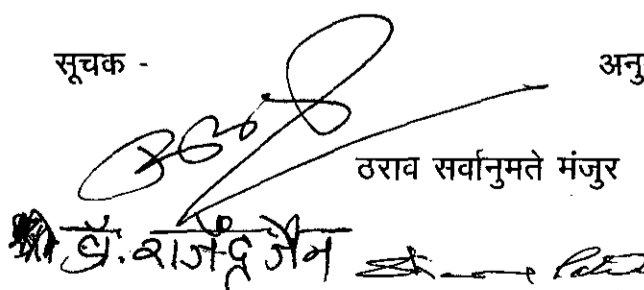 सूचक - अनु
ठराव सर्वानुमते मंजुर
डॉ. राजेंद्र जैन